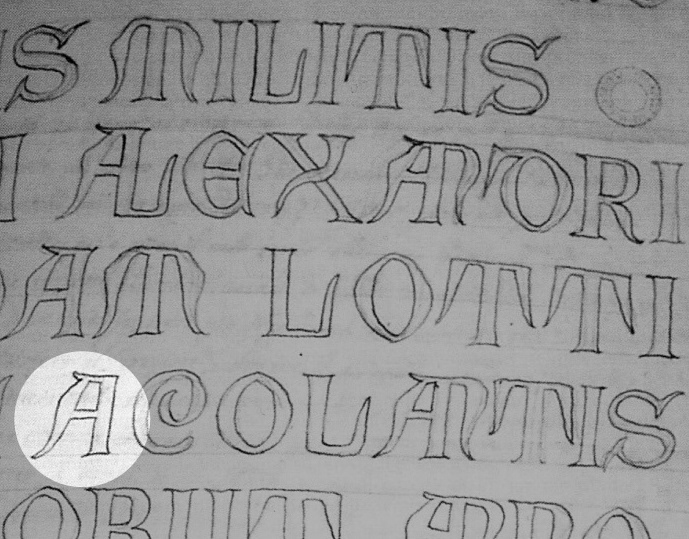 S MILITIS
I ALEXANDRI
DAM LOTTI
ACOLANTIS
OBIIT